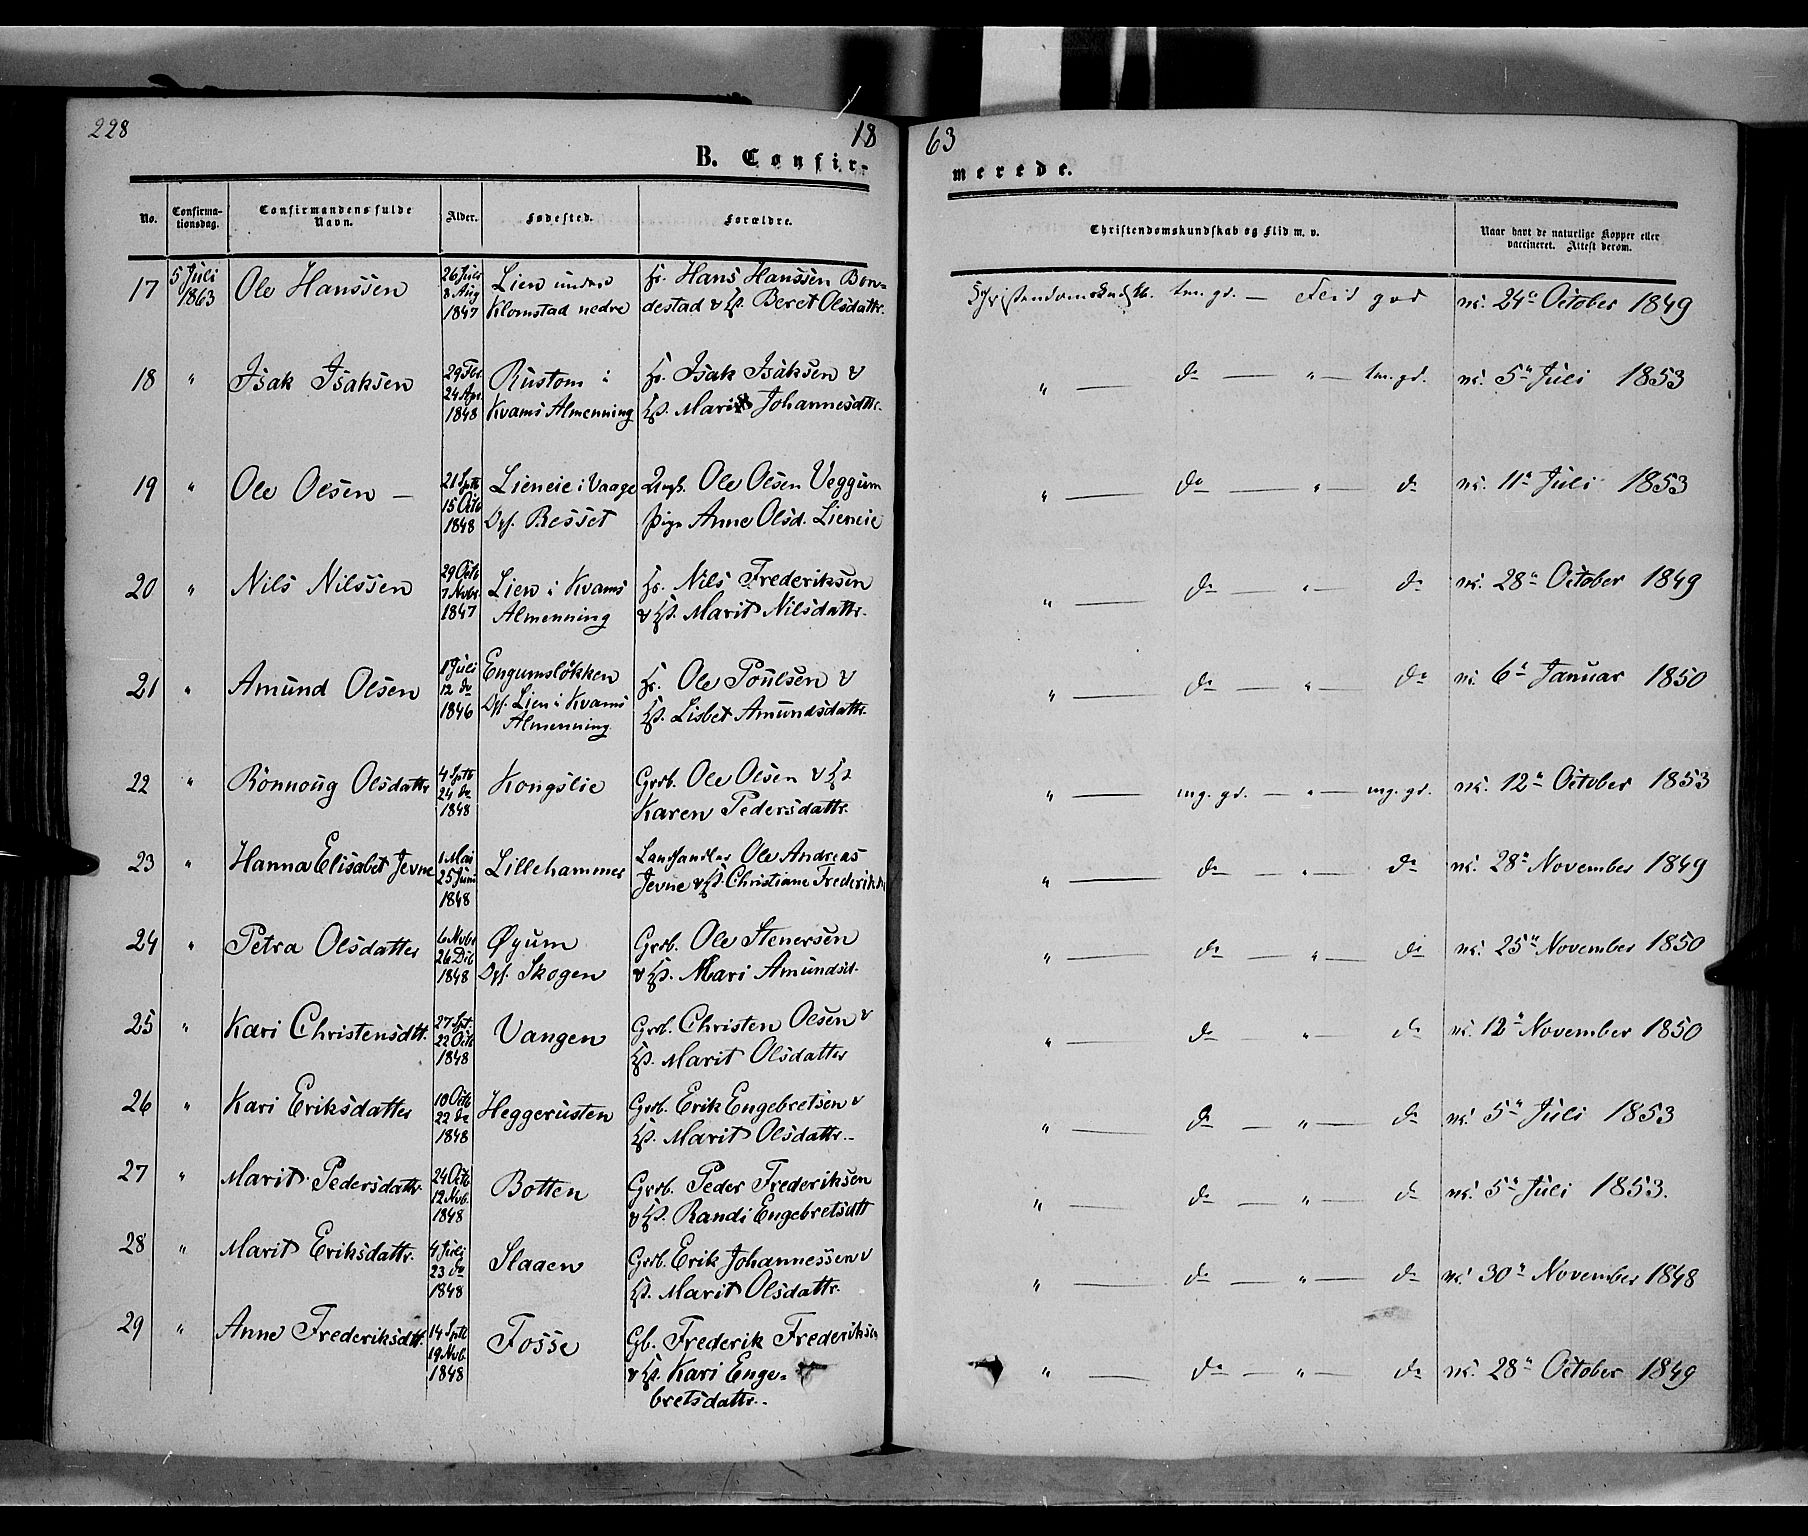 228
18
63
B. Confir-
merede.
No.
Confirma-
tionsdag.
Confirmandens fulde
Navn.
Alder.
Fødested.
Forældre.
Christendomskundskab og Flid m. v.
Naar havt de naturlige Kopper eller
vaccineret. Attest derom.
17 5 Juli 1863 Ole Hanssen 26 Juli 8 Aug 1847 Lien under Klomstad nedre Hans Hanssen Bon-
destad Beret Olsdattr. tm. gd. — Flid god 24de October 1849
18 " Isak Isaksen 29 Fbr. 24 Apr. 1848 Rustom i Kvams Almenning Isak Isaksen &
Mari Johannesdattr. " — do — " — tm. gd. 5te Juli 1853
19 " Ole Olsen — 21 Sptb 15 Octb 1848 Lieneie i Vaage Opf. Besset Ungk. Ole Olsen Veggum
Pige Anne Olsd. Lieneie " — do — " — do 11te Juli 1853
20 " Nils Nilssen 29 Octb 7 Nvbr. 1847 Lien i Kvams Almenning Nils Frederiksen
& Marit Nilsdattr. " — do — " — do 28de October 1849
21 " Amund Olsen 1 Juli 12 do 1846 Engumsløkken Opf. Lien i Kvams Almenning Ole Poulsen &
Lisbet Amundsdattr. " — do — " — do 6te Januar 1850
22 " Rönnoug Olsdattr 4 Sptb 24 do 1848 Kongslie Grdb. Ole Olsen &
Karen Pedersdattr. " — mg. gd. — " — mg. gd. 12te October 1853
23 " Hanna Elisabet Jevne 1 Mai 25 Juni 1848 Lillehammer Landhandler Ole Andreas
Jevne & Christiane Frederiks " — do — " — do 28de November 1849
24 " Petra Olsdatter 6 Nvbr 26 Dcb 1848 Øyum Opf. Skogen Grdb. Ole Stenersen
& Mari Amundsd. " — do — " — do 25de November 1850
25 " Kari Christensdtt. 27 Spt. 22 Octb 1848 Vangen Grdb. Christen Olsen &
Marit Olsdatter " — do — " — do 12te November 1850
26 " Kari Eriksdatter 10 Octb 22 do 1848 Heggerusten Grdb. Erik Engebretsen &
Marit Olsdattr. " — do — " — do 5te Juli 1853
27 " Marit Pedersdattr. 24 Octb 12 Nvb. 1848 Botten Grdb. Peder Frederiksen
& Randi Engebretsdtt " — do — " — do 5te Juli 1853.
28 " Marit Eriksdattr. 4 Juli 23 do 1848 Slaaen Grdb. Erik Johannessen &
Marit Olsdattr. " — do — " — do 30te November 1848
29 " Anne Frederiksdtt. 14 Sptb 19 Nvb. 1848 Fosse Gb. Frederik Frederiksen
& Kari Enge-
bretsdattr. " — do — " — do 28de October 1849